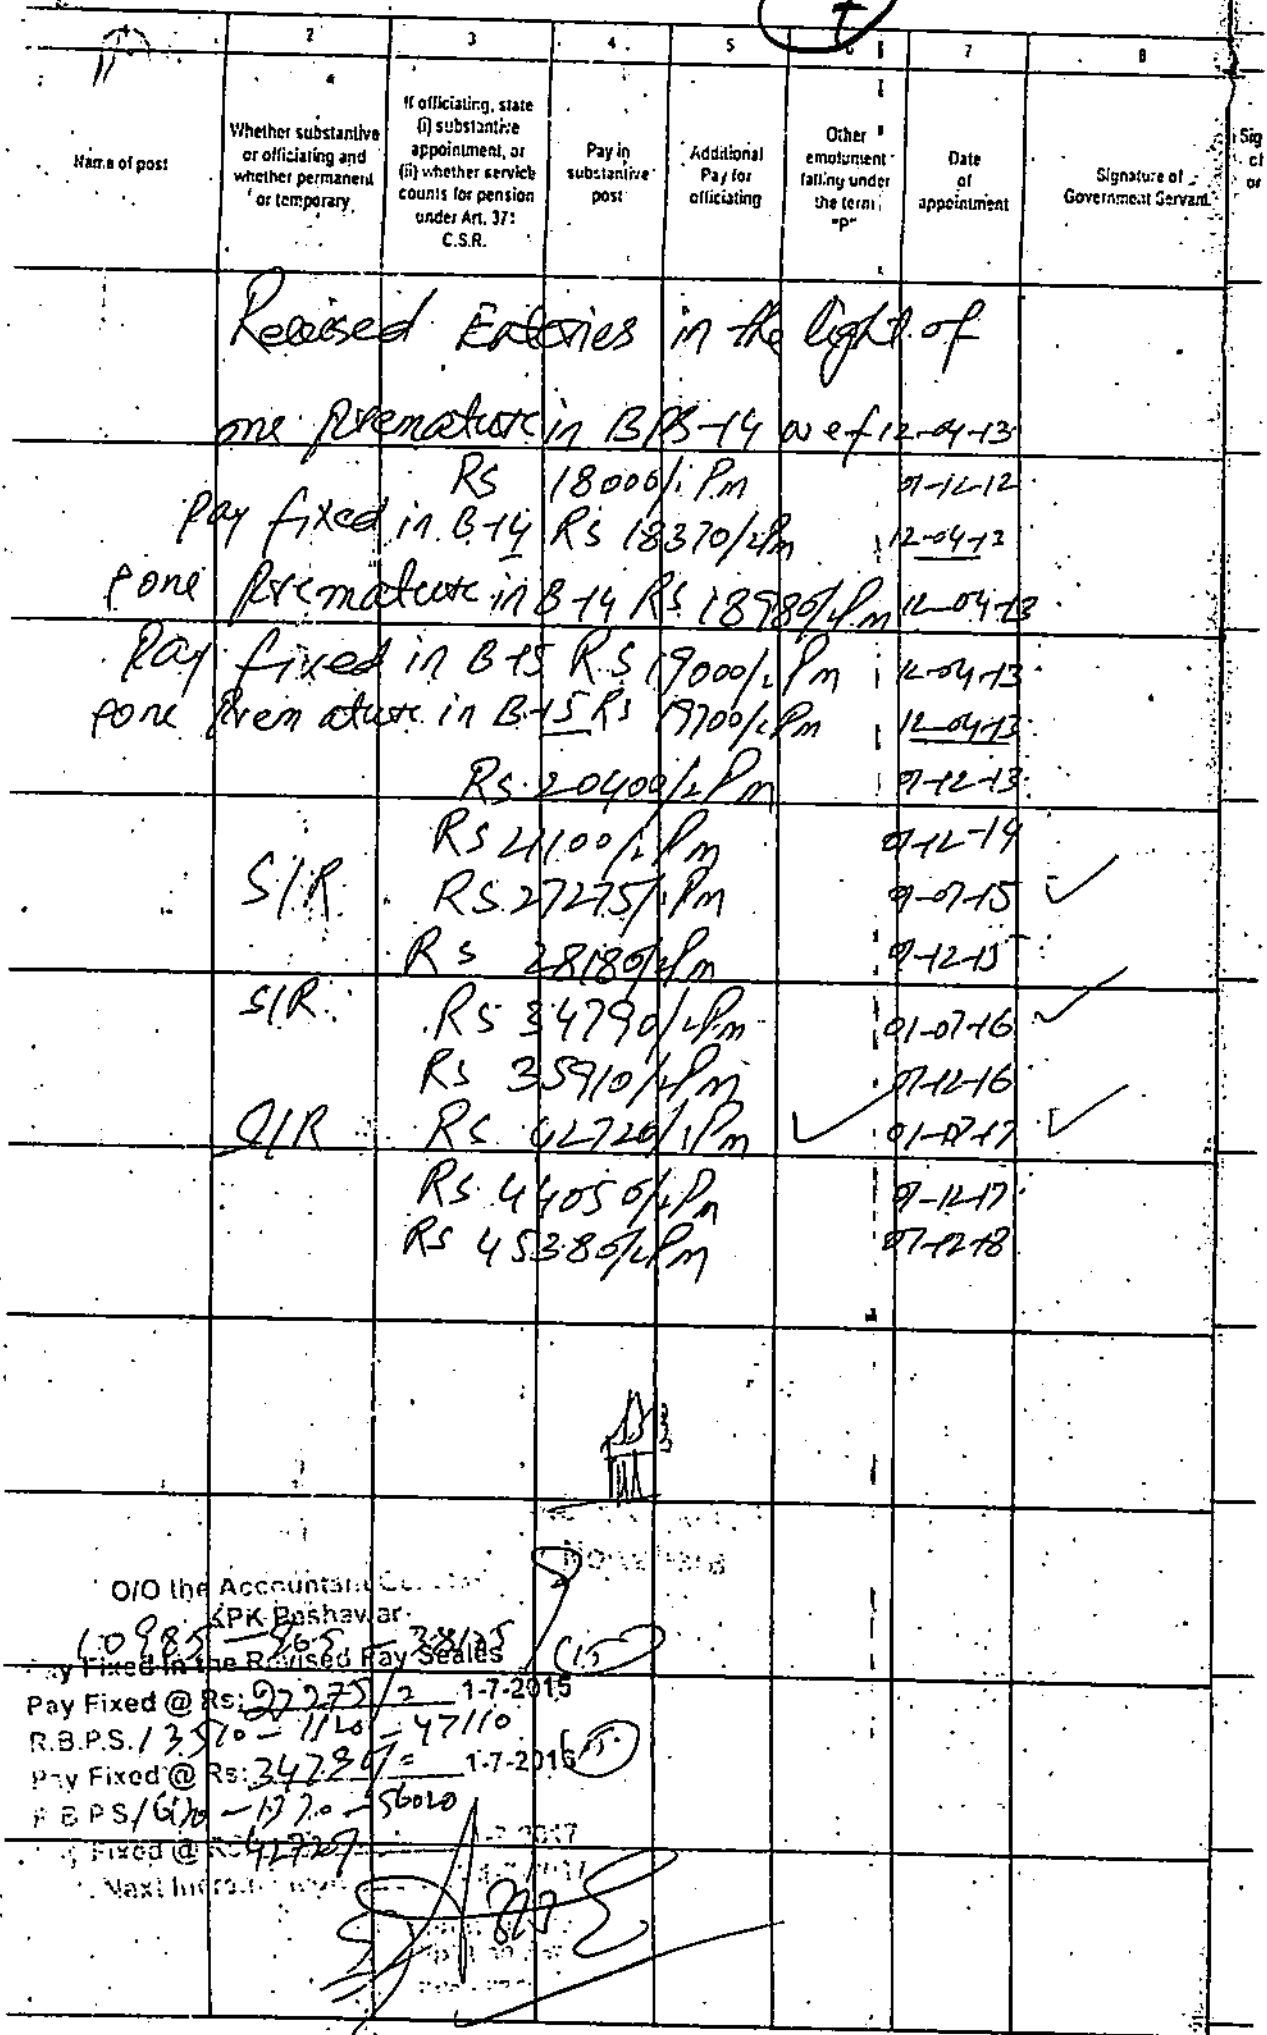 7
2 3 4 5 6 7 8
Name of post
Whether substantive or officiating and whether permanent or temporary
If officiating, state (i) substantive appointment, or (ii) whether service counts for pension under Art. 371 C.S.R.
Pay in substantive post
Additional Pay for officiating
Other emolument falling under the term "P"
Date of appointment
Signature of Government Servant
Sig
or
Revised Enteries in the light of
one Premature in BPS-14 w e f 12-04-13
Rs 18000/= Pm 01-12-12
Pay fixed in B-14 Rs 18370/= Pm 12-04-13
one Premature in B-14 Rs 18980/= Pm 12-04-13
Pay fixed in B-15 RS 19000/= Pm 12-04-13
one Premature in B-15 Rs 19700/= Pm 12-04-13
Rs. 20400/= Pm 01-12-13
Rs 21100/= Pm 01-12-14
S/R Rs. 27275/= Pm 01-07-15
Rs 28180/= Pm 01-12-15
S/R Rs 34790/= Pm 01-07-16
Rs 35910/= Pm 01-12-16
S/R Rs. 42720/= Pm 01-07-17
Rs. 44050/= Pm 01-12-17
Rs 45380/= Pm 01-12-18
O/O the Accountant
KPK Peshawar
10985 - 905 - 38135
Pay Fixed in the Revised Pay Scales (15)
Pay Fixed @ Rs: 27275/= 1-7-2015
R.B.P.S. 13510 - 1120 - 47110
Pay Fixed @ Rs: 34790/= 1-7-2016
R B P S 16120 - 1330 - 56020
Fixed @ Rs 42720/= 2017
Next